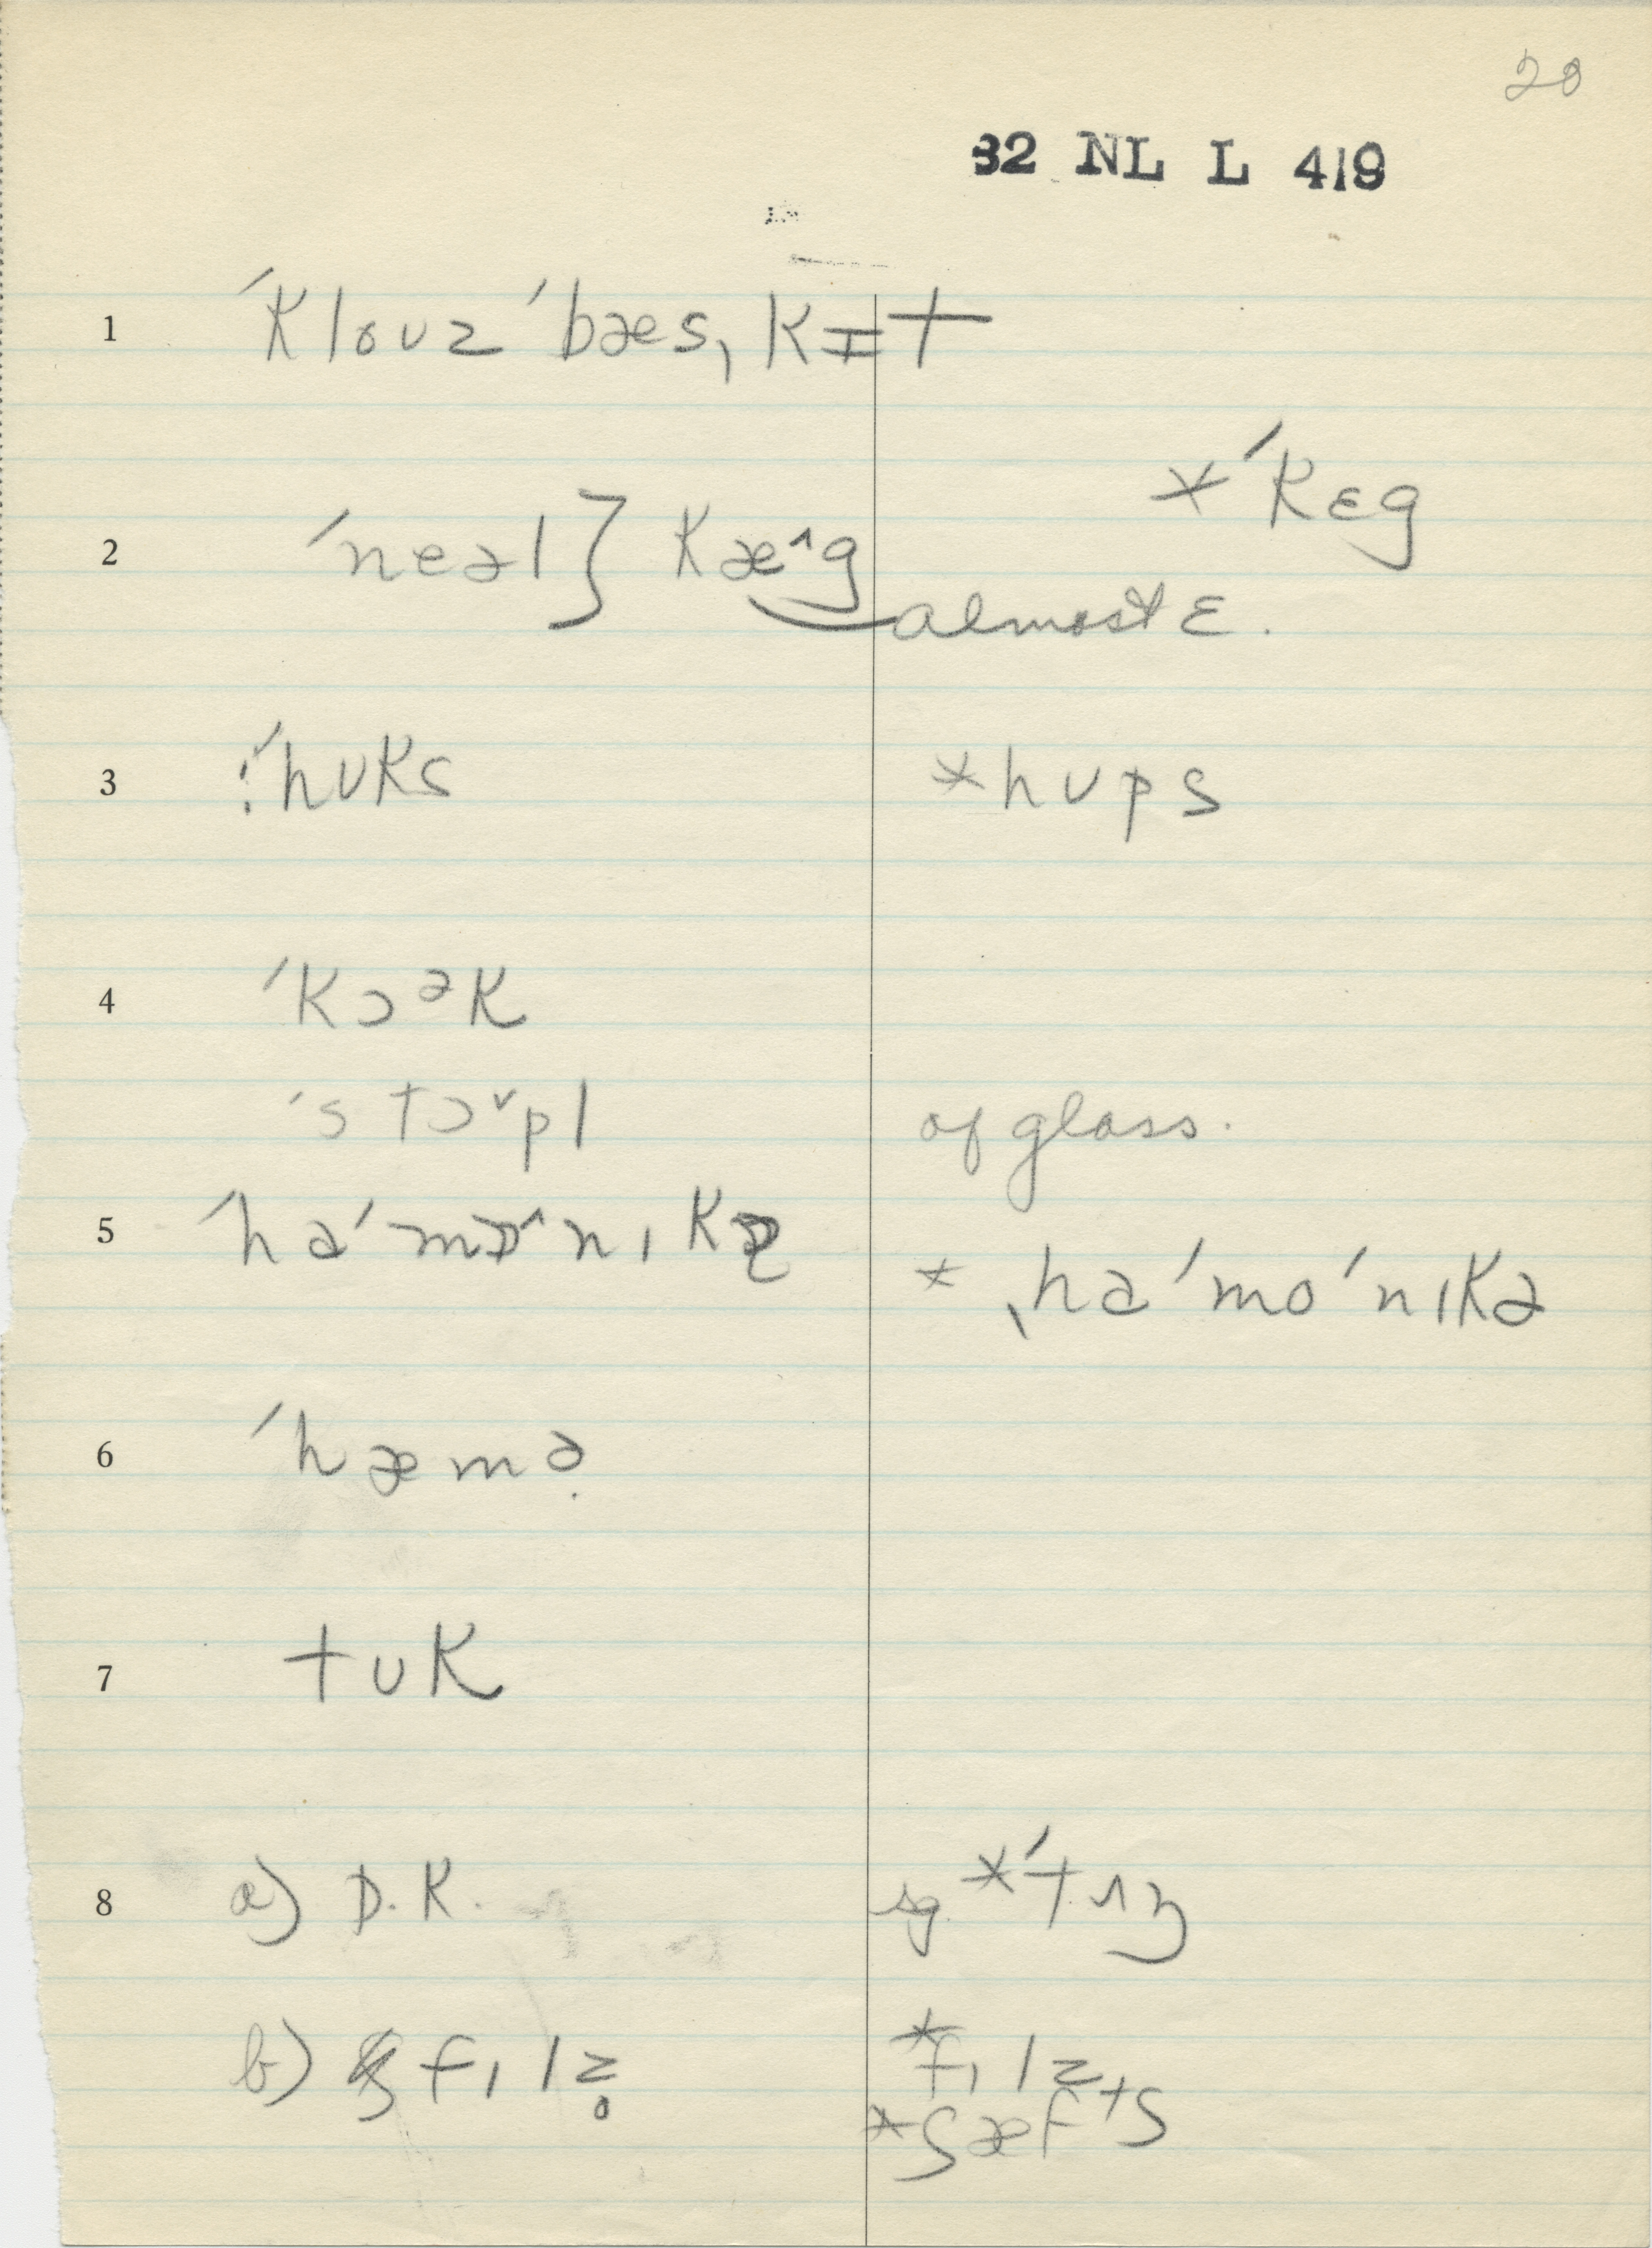 20
32 NL L 419
1 ˈklouz ˈbæs,kɪt
*ˈkɛg
2 ˈneəl} kæ^g almost ɛ.
3 :ˈhuks *hups
4 ˈkɔᵊk
ˈstɔˇpl of glass.
5 ˈhəˈmɒ^nɪkə
* ˌhəˈmoˈnɪkə
6 ˈhæmə̣
7 tuk
8 a) D.K. sg. *ˈtʌŋ
b) fɪlz̥ *fɪlz
*ʃæfts